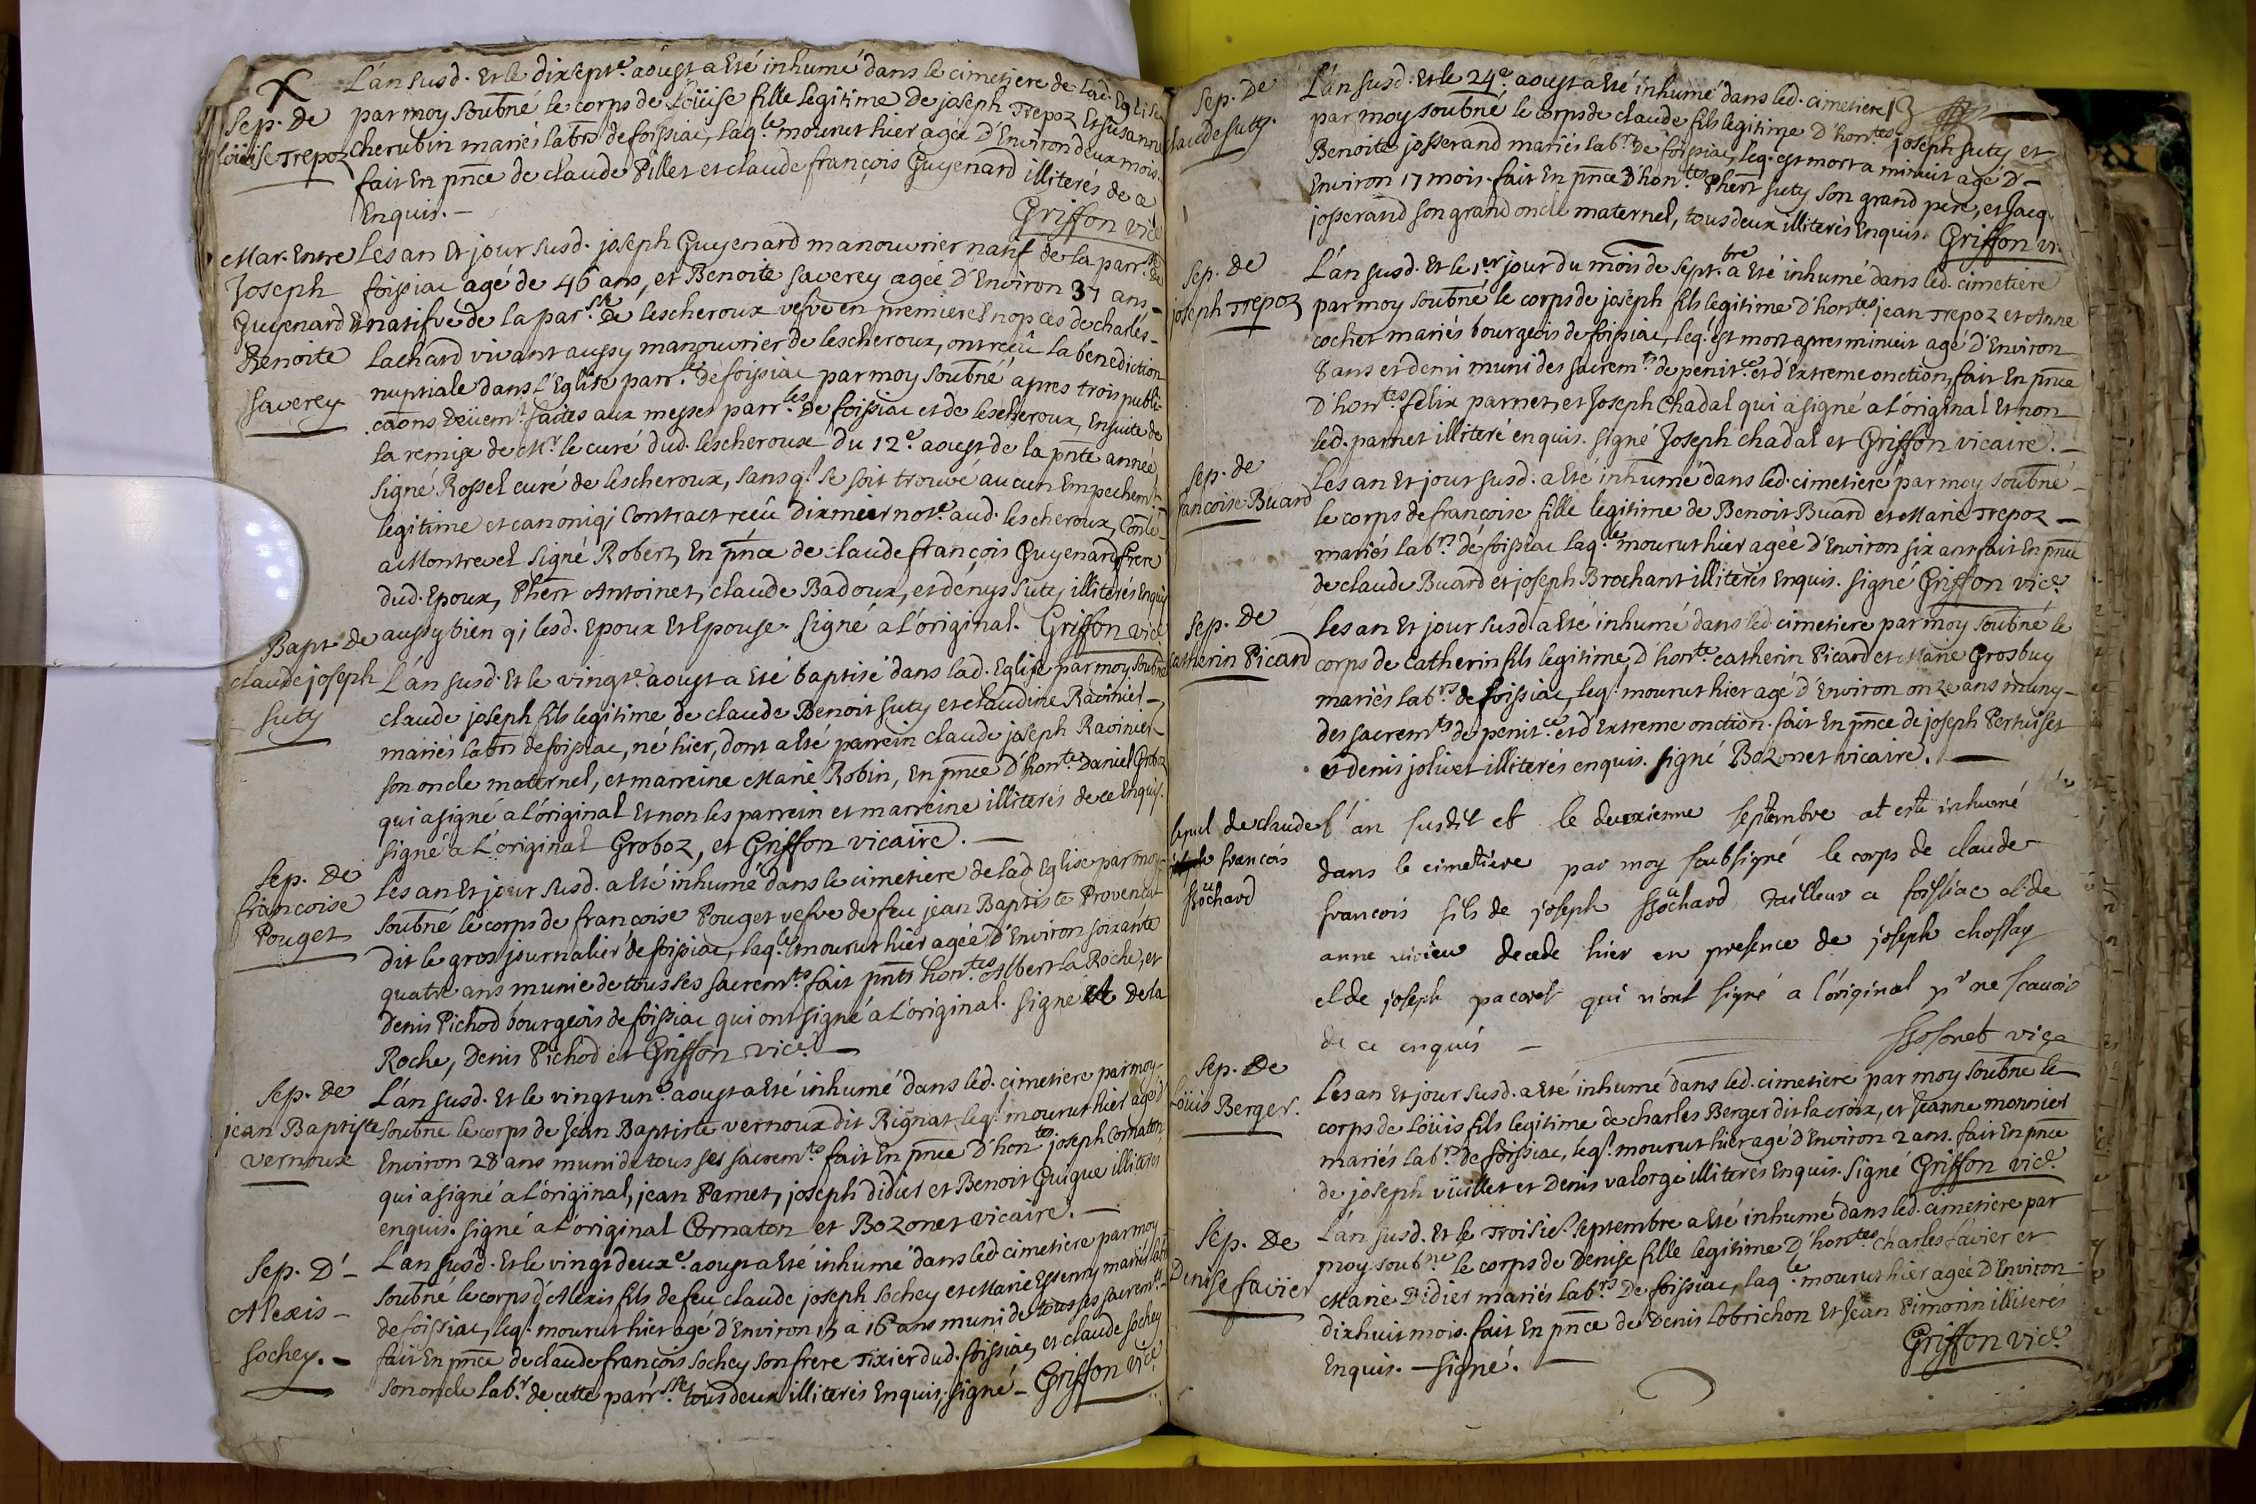 Sep. de
Loüise Trepoz
L'an susd. Et le dixsept.e aoust a Eté inhumé dans le cimetiere de lad. Eglise
par moy soubné le corps de Loüise fille legitime de joseph Trepoz Et Susanne
cherubin mariés labrs de foissiac, laq.le mourut hier agée D'Environ deux mois.
fait En pnce de claude Pillet et claude françois Guyenard illiterés de ce
Enquis. —
Griffon vic.e
Mar. Entre
Joseph
Guyenard Et
Benoite
Saverey
Les an Et jour susd. joseph Guyenard manouvrier natif de la parr.sse de
foissiac agé de 46 ans, et Benoite Saverey agée D'Environ 37 ans —
natifve de la par.sse De lescheroux vefve en premieres nopces de charles —
Lachard vivant aussy manouvrier de lescheroux, ont reçeû la benediction
nuptiale dans l'Eglise parr.le de foissiac par moy soubné apres trois publi-
caons Deüem.t faites aux messes parr.les de foissiac et de lescheroux, Ensuite de
la remise de Mr. le curé dud. lescheroux du 12.e aoust de la pnte année
signé Rossel curé de lescheroux, sans q.l se soit trouvé aucun Empechem.t
legitime et canoniq; Contract reçû Dixmier not.e aud. lescheroux, Conlé
a Montrevel signé Robert, En pnce de claude françois Guyenard frere
dud. Epoux, Phert Antoinet, claude Badoux, et denys Suty illiterés Enquis
aussy bien q; lesd. Epoux Et Epouse. signé a L'original. Griffon vic.e
Bapt. de
claude joseph
Suty
L'an susd. Et le vingt.e aoust a Eté baptisé dans lad. Eglise par moy soubné
claude joseph fils legitime de claude Benoit Suty et claudine Ravinet —
mariés labrs de foissiac, né hier, dont a Eté parrein claude joseph Ravinet
son oncle maternel, et marreine Marie Robin, En pnce D'hon.te Daniel Groboz
qui a signé a L'original Et non les parrein et marreine illiterés de ce Enquis.
signé a L'original Groboz, et Griffon vicaire. —
Sep. De
françoise
Pouget
Les an Et jour susd. a Eté inhumé dans le cimetiere de lad Eglise par moy
soubné le corps de francoise Pouget vefve de feu jean Baptiste Provencat
dit le gros journalier de foissiac, laq.le mourut hier agée D'Environ soixante
quatre ans munie de tous ses sacrem.ts fait pnts hon.tes Albert la Roche, et
Denis Pichod bourgeois de foissiac qui ont signé a L'original. Signe de la
Roche, Denis Pichod et Griffon vic.e —
Sep. de
jean Baptiste
vernoux
L'an susd. Et le vingt un.e aoust a Eté inhumé dans led. cimetiere par moy
soubné le corps de Jean Baptiste vernoux dit Rignat leq.l mourut hier agé d'
Environ 28 ans muni de tous ses sacrem.ts fait En pnce D'hon.tes joseph Cornaton
qui a signé a L'original, jean Parnet, joseph didier et Benoit Guigue illiterés
enquis. signé a L'original Cornaton et Bozonet vicaire. —
Sep. D'—
Alexis —
Sochey. —
L'an susd. Et le vingt deux.e aoust a Eté inhumé dans led. cimetiere par moy
soubné le corps d'Alexis fils de feu claude joseph Sochey et Marie mariés labrs
de foissiac, leq. mourut hier agé d'Environ 15 a 16 ans muni de tous ses sacrem.ts
fait En pnce de claude françois Sochey son frere Tixier dud. foissiac, et claude Sochey
son oncle lab.r de cette parr.sse tous deux illiterés Enquis; signé — Griffon vic.e
Sep. de
claude Suty.
L'an susd. Et le 24.e aoust a Eté inhumé dans led. cimetiere
par moy soubné le corps de claude fils legitime D'hon.tes joseph Suty et
Benoite josserand mariés lab.rs de foissiac, leq. est mort a minuit agé D'—
Environ 17 mois. fait En pnce D'hon.tes Phert Suty son grand pere, et Jacq.
josserand son grand oncle maternel, tous deux illiterés Enquis. Griffon vi.
Sep. de
joseph Trepoz
L'an susd. Et le 1.er jour du mois de Sept.bre a Eté inhumé dans led. cimetiere
par moy soubné le corps de joseph fils legitime D'hon.tes jean Trepoz et Anne
cochet mariés bourgeois de foissiac, leq. est mort apres minuit agé D'Environ
8 ans et demi muni des sacrem.ts de penit.ce et d'Extreme onction, fait En pnce
D'hon.tes felix parnet, et Joseph Chadal qui a signé a L'original Et non
led. parnet illiteré enquis. signé Joseph chadal et Griffon vicaire. —
Sep. de
francoise Buard
Les an Et jour susd. a Eté inhumé dans led. cimetiere par moy soubné —
le corps de françoise fille legitime de Benoit Buard et Marie Trepoz —
mariés lab.rs de foissiac laq.le mourut hier agée d'Environ six ans fait En pnce
de claude Buard et joseph Brochant illiterés Enquis. signé Griffon vic.e
Sep. de
Catherin Picard
Les an Et jour susd. a Eté inhumé dans led cimetiere par moy soubné le
corps de Catherin fils legitime D'hon.te catherin Picard et Marie Grosbuy
mariés lab.rs de foissiac, leq. mourut hier agé d'Environ onze ans muny —
des sacrem.ts de penit.ce et d'Extreme onction. fait En pnce de joseph Pertuiset
et denis jolivet illiterés enquis. signé Bozonet vicaire. —
sepul de claude
francois
Bochard
l'an susdit et le deuxienne septembre at esté inhumé
dans le cimetiere par moy soubsigné le corps de claude
francois fils de joseph Bochard tailleur a foissiac et de
anne vivieu decede hier en presence de joseph chossay
et de joseph pacoret qui n'ont signé a l'original pr ne scavoir
de ce enquis —
Bosonet vice
Sep. De
Loüis Berger.
Les an Et jour susd. a Eté inhumé dans led. cimetiere par moy soubné le
corps de Loüis fils legitime de charles Berger dit lacroix, et Jeanne monnier
mariés lab.rs de foissiac, leq.l mourut hier agé d'Environ 2 ans. fait En pnce
de joseph vüillet et Denis valorge illiterés Enquis. signé Griffon vic.e
Sep. De
Denise favier
L'an susd. Et le Troisie.e Septembre a Eté inhumé dans led. cimetiere par
moy soubné le corps de Denise fille legitime D'hon.tes charles favier et
Marie Didier mariés lab.rs De foissiac, laq.le mourut hier agée D'Environ
dixhuit mois. fait En pnce de Denis lobrichon Et Jean Pimorin illiterés
Enquis. — signé. —
Griffon vic.e